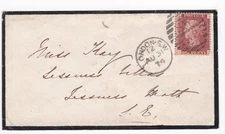 Miss Kay
Lessness Villa
Lessness Heath
S.E.
LONDON-S.W